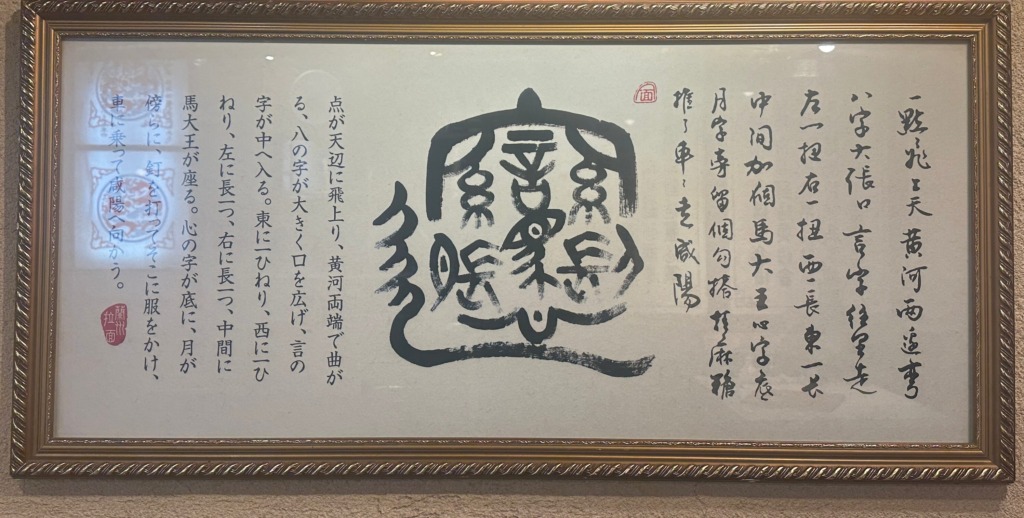 一點飛上天黄河兩邊彎
八字大張口言字往里走
左一扭右一扭西一長東一長
中间加個馬大王心字底
月字旁留個勾搭挂麻糖
推了車車走咸陽
面
𰻝
点が天辺に飛上り、黄河両端で曲が
る、八の字が大きく口を広げ、言の
字が中へ入る。東に一ひねり、西に一ひ
ねり、左に長一つ、右に長一つ、中間に
馬大王が座る。心の字が底に、月が
傍らに、釘を打ってそこに服をかけ、
車に乗って咸陽へ向かう。
蘭州
拉面